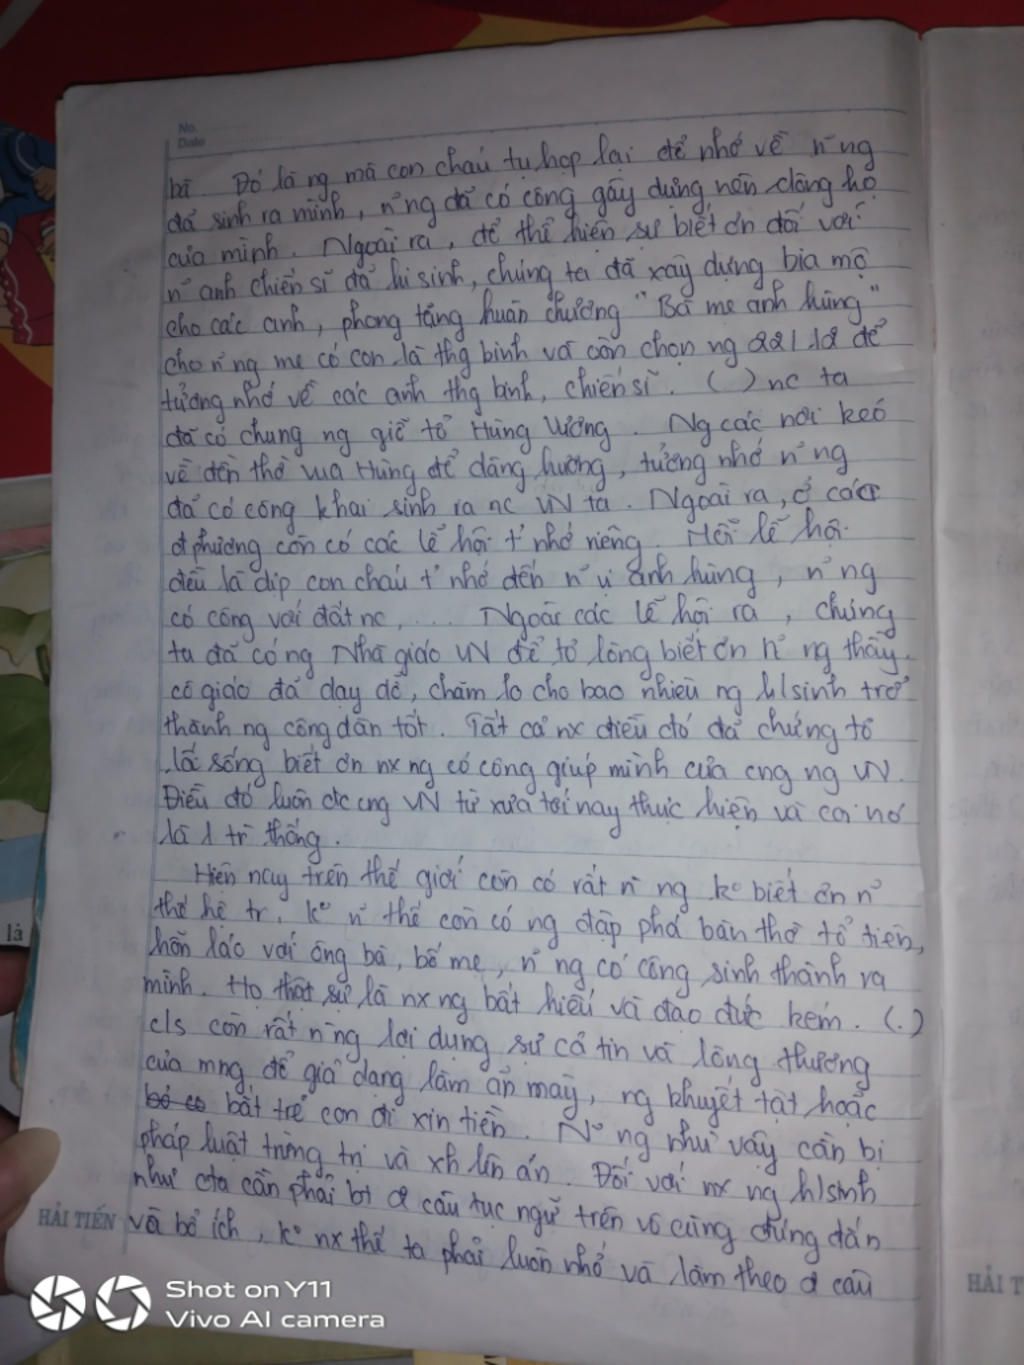 No.
Date
bà. Đó là ng mà con cháu tụ họp lại để nhớ về n~ ng
đã sinh ra mình, n~ ng đã có công gây dựng nên dòng họ
của mình. Ngoài ra, để thể hiện sự biết ơn đối với
n~ anh chiến sĩ đã hi sinh, chúng ta đã xây dựng bia mộ
cho các anh, phong tặng huân chương "Bà mẹ anh hùng"
cho n~ ng mẹ có con là thg binh và còn chọn ng 22/12 để
tưởng nhớ về các anh thg binh, chiến sĩ. ( ) nc ta
đã có chung ng giỗ tổ Hùng Vương. Ng các nơi kéo
về đền thờ vua Hùng để dâng hương, tưởng nhớ n~ ng
đã có công khai sinh ra nc VN ta. Ngoài ra, ở các
đ phương còn có các lễ hội t' nhớ riêng. Mỗi lễ hội
đều là dịp con cháu t' nhớ đến n~ vị anh hùng, n~ ng
có công với đất nc, ... Ngoài các lễ hội ra, chúng
ta đã có ng Nhà giáo VN để tỏ lòng biết ơn n~ ng thầy
cô giáo đã dạy dỗ, chăm lo cho bao nhiêu ng h/sinh trở
thành ng công dân tốt. Tất cả nx điều đó đã chứng tỏ
sống biết ơn nx ng có công giúp mình của cng ng VN.
Điều đó luôn đc cng VN từ xưa tới nay thực hiện và coi nó
là 1 tr` thống.
Hiện nay trên thế giới còn có rất n` ng ko biết ơn n~
thế hệ tr. ko n~ thế còn có ng đập phá bàn thờ tổ tiên,
hỗn láo với ông bà, bố mẹ, n~ ng có công sinh thành ra
mình. Họ thật sự là nx ng bất hiếu và đạo đức kém. (.)
c/s còn rất n` ng lợi dụng sự cả tin và lòng thương
của mng để giả dạng làm ăn mày, ng khuyết tật hoặc
bắt trẻ con đi xin tiền. N~ ng như vậy cần bị
pháp luật trừng trị và xh lên án. Đối với nx ng h/sinh
như cta cần phải bt câu tục ngữ trên vô cùng đúng đắn
và bổ ích, ko nx thế ta phải luôn nhớ và làm theo câu
HẢI TIẾN
HẢI T
là
Shot on Y11
Vivo AI camera